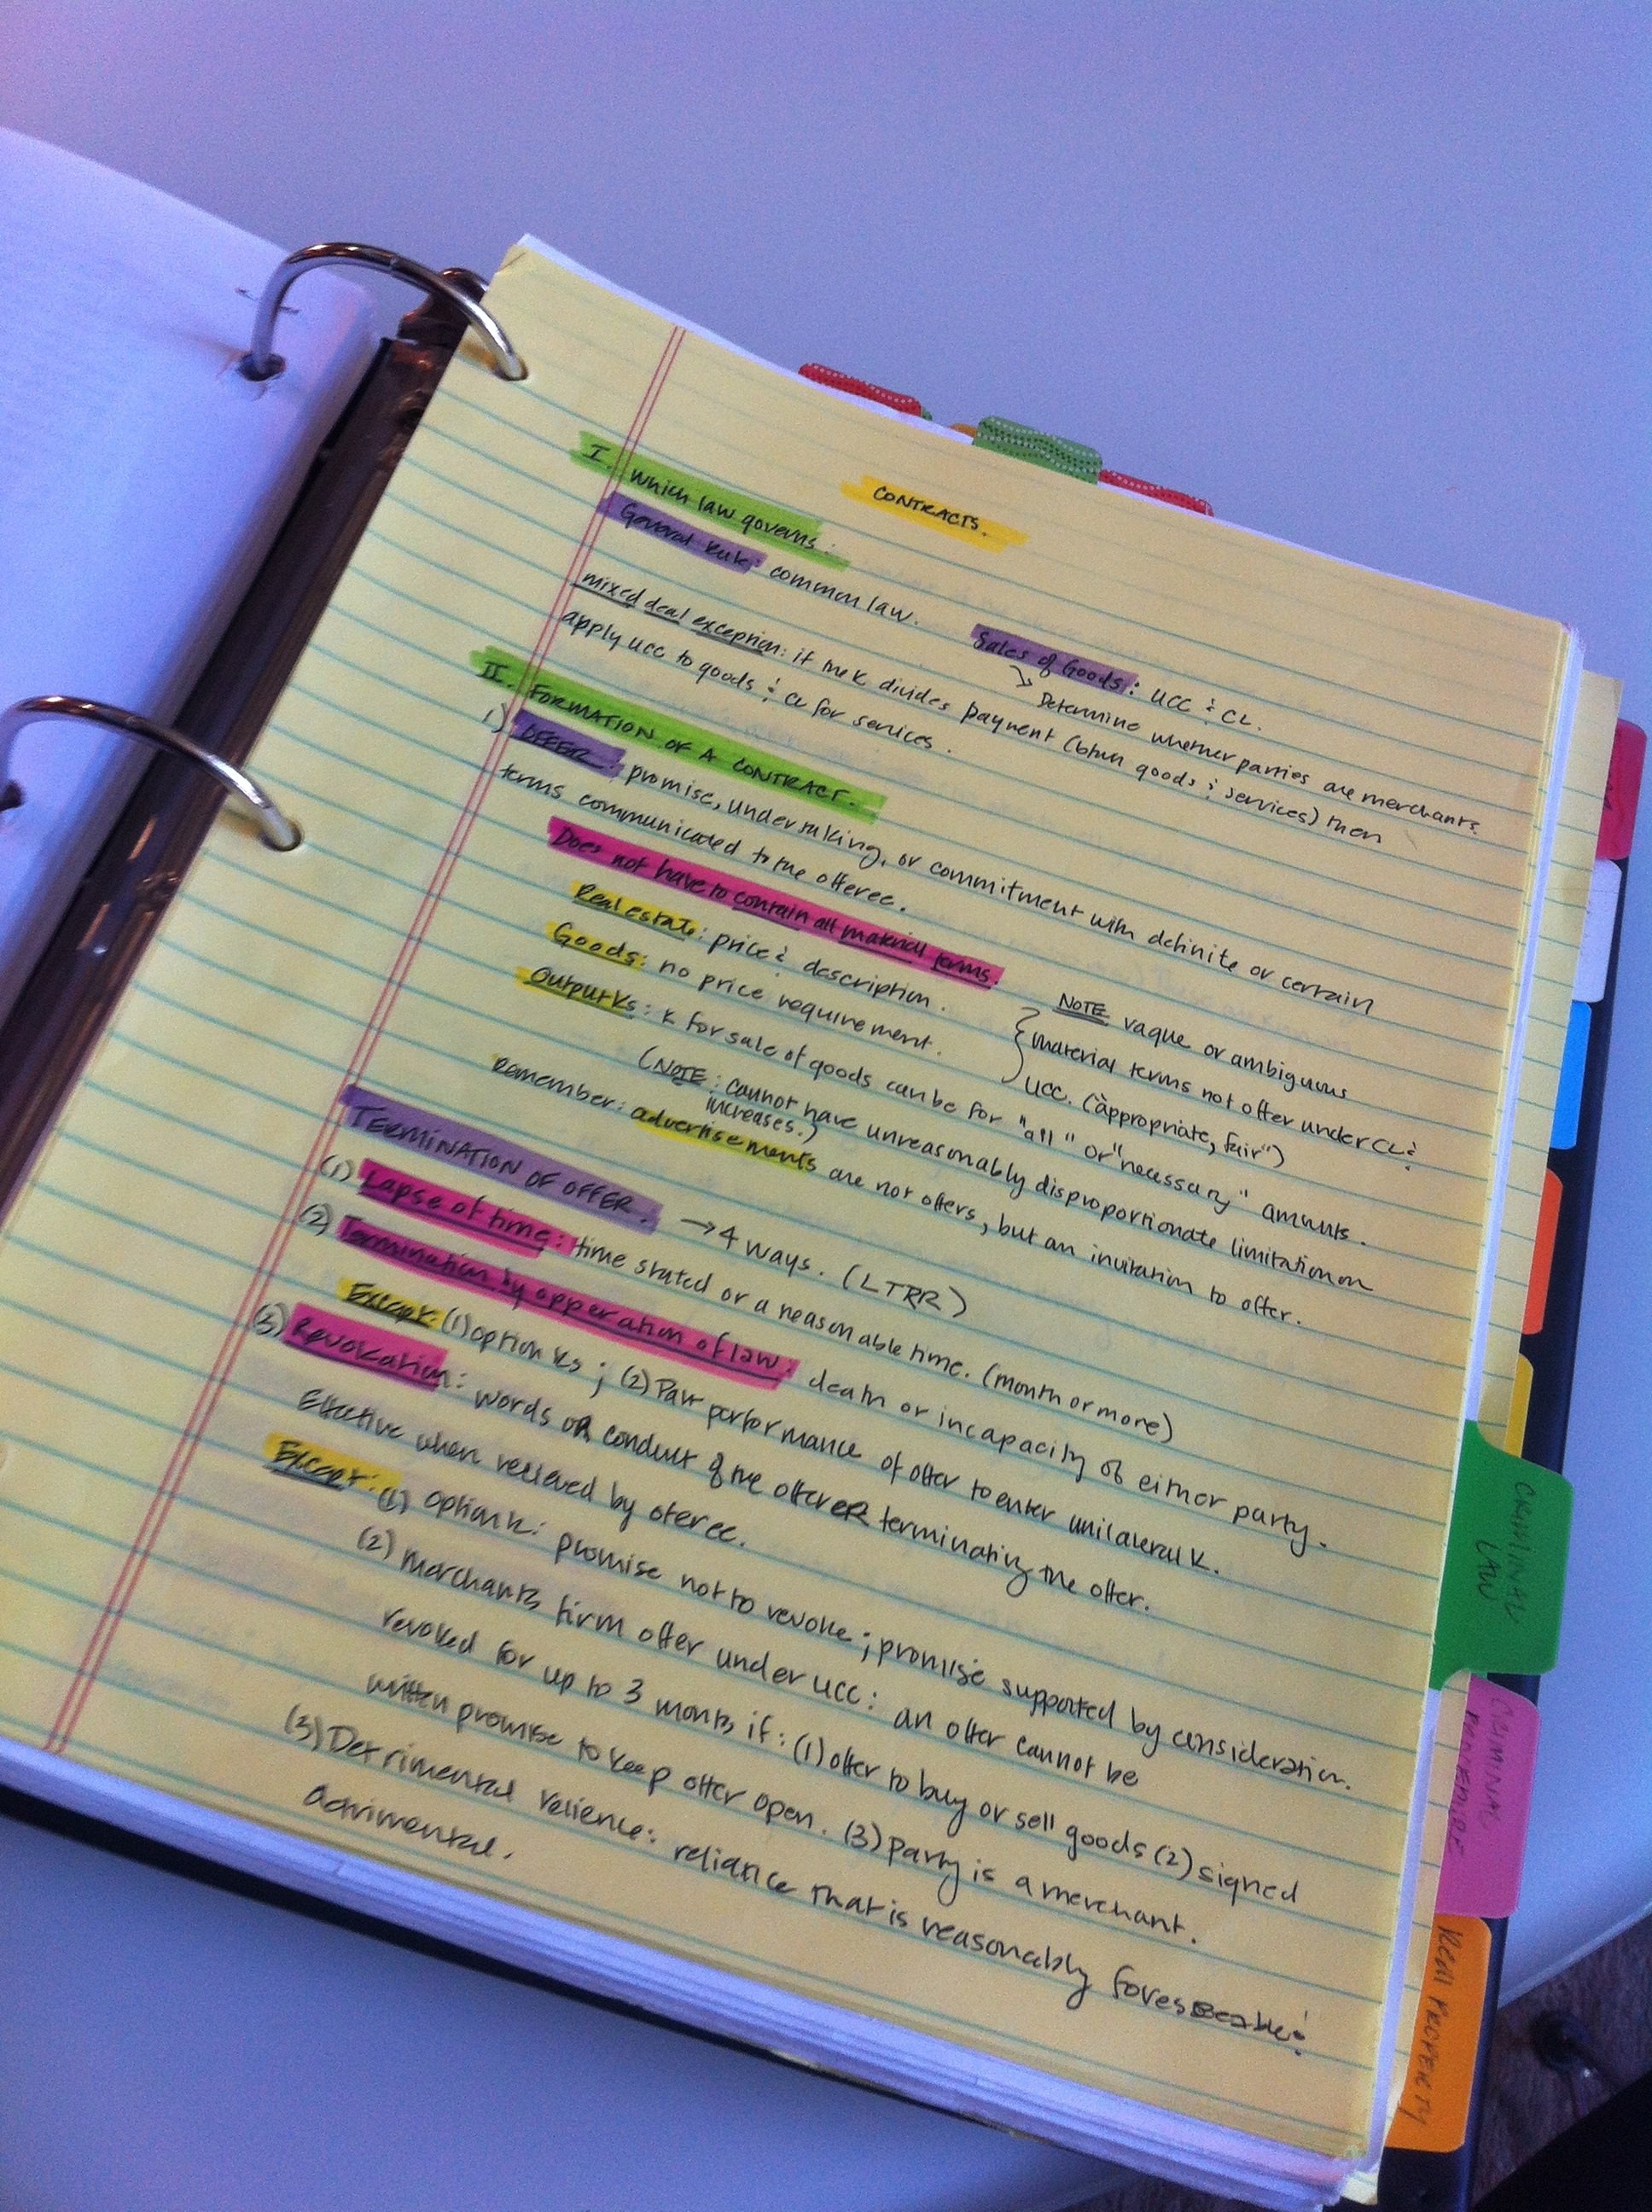 CONTRACTS.
I. Which law governs:
General Rule: common law.
Sales of Goods: UCC & CL.
↳ Determine whether parties are merchants.
mixed deal exception: if the K divides payment (btwn goods & services) then
apply UCC to goods & CL for services.
II. FORMATION OF A CONTRACT.
1) OFFER: promise, undertaking, or commitment with definite or certain
terms communicated to the offeree.
Does not have to contain all material terms.
Real estate: price & description.
Goods: no price requirement.
NOTE vague or ambiguous
material terms not offer under CL &
UCC. ("appropriate, fair")
Output Ks: K for sale of goods can be for "all" or "necessary" amounts.
(NOTE: cannot have unreasonably disproportionate limitation on
increases.)
Remember: advertisements are not offers, but an invitation to offer.
TERMINATION OF OFFER. → 4 ways. (LTRR)
(1) Lapse of time: time stated or a reasonable time. (month or more)
(2) Termination by opperation of law: death or incapacity of either party.
Except: (1) option Ks; (2) Part performance of offer to enter unilateral K.
(3) Revokation: words OR conduct of the offerER terminating the offer.
Effective when recieved by oferee.
Except: (1) Option K: promise not to revoke; promise supported by consideration.
(2) Merchants firm offer under UCC: an offer cannot be
revoked for up to 3 months if: (1) offer to buy or sell goods (2) signed
written promise to keep offer open. (3) party is a merchant.
(3) Detrimental relience: reliance that is reasonably foreseeable &
detrimental.
CRIMINAL
LAW
CRIMINAL
PROCEDURE
REAL PROPERTY